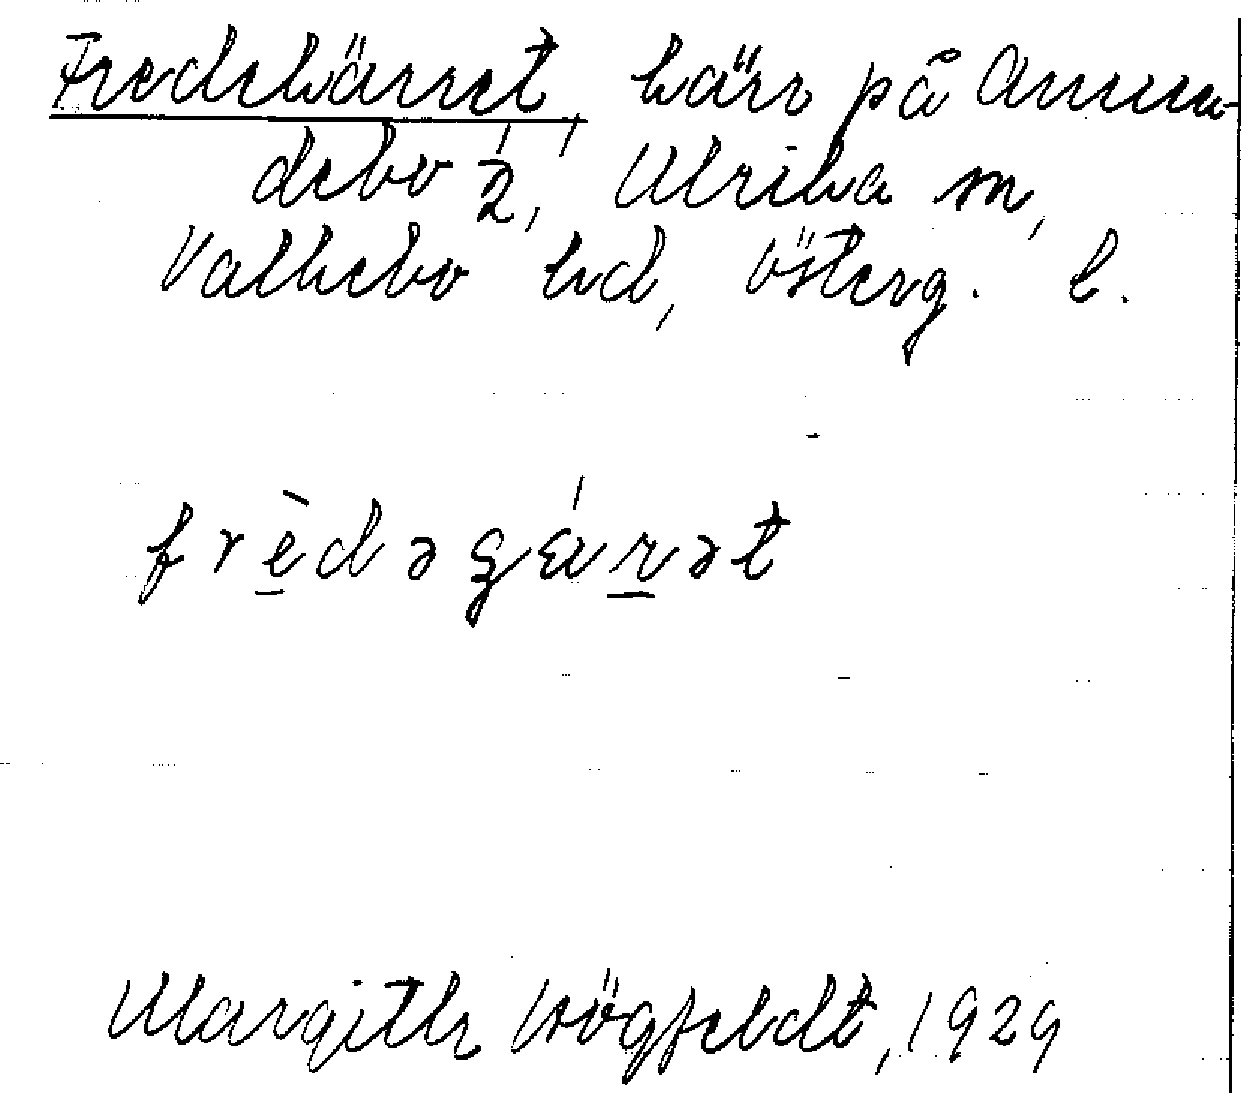 Fredekärret, kärr på Anna-
debo 1/2, Ulrika sn,
Valkebo hd, Österg. l.
frèdəgǽrət
Margith Högfeldt, 1929